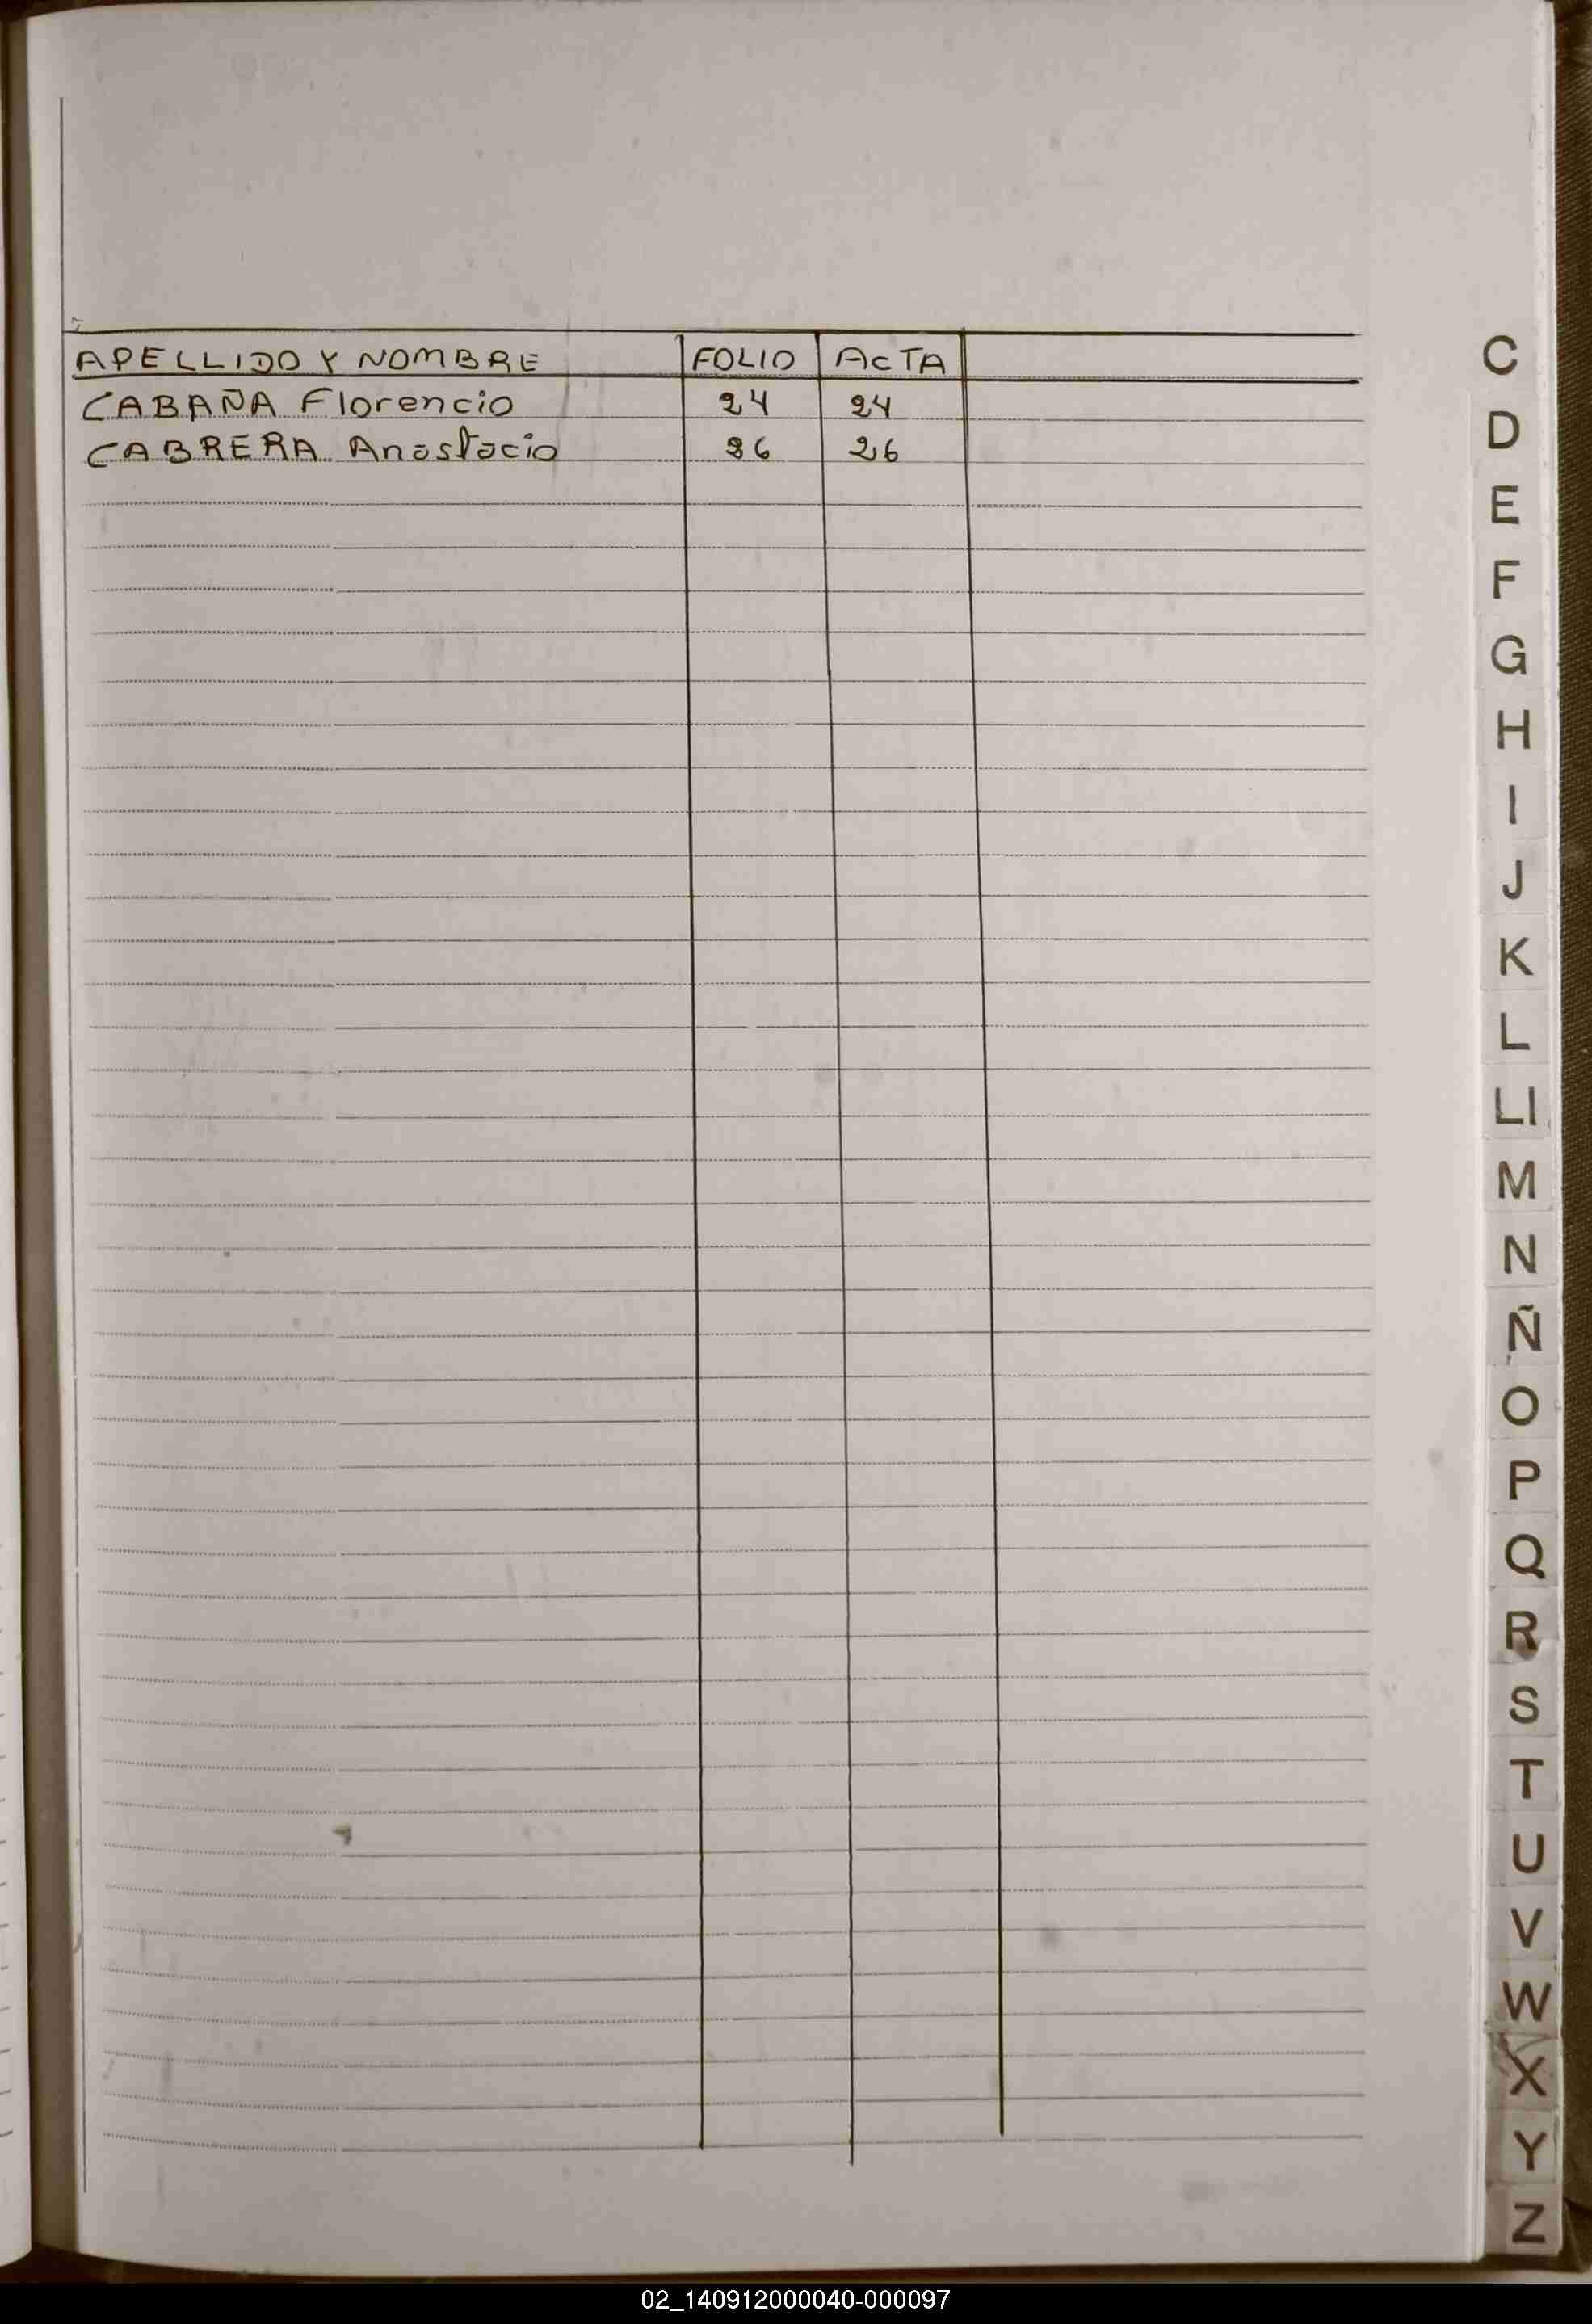 APELLIDO Y NOMBRE FOLIO ACTA
CABAÑA Florencio 24 24
CABRERA Anastacio 26
C
D
E
F
G
H
I
J
K
L
Ll
M
N
Ñ
O
P
Q
R
S
T
U
V
W
X
Y
Z
02_140912000040-000097